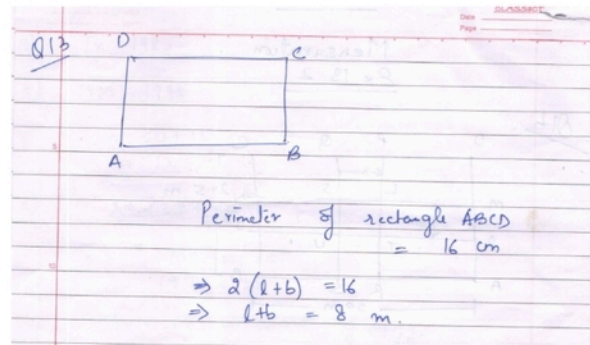 CLASSMATE
Date
Page
Q13
D C
A B
Perimeter of rectangle ABCD
= 16 cm
⇒ 2 (l+b) = 16
⇒ l+b = 8 m.